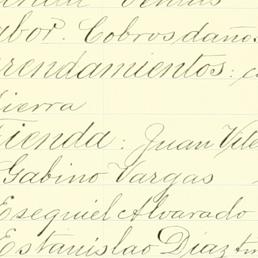 abor. Cobros, daños
rrendamientos:
Tierra
Tienda: Juan
Gabino Vargas
Esequiel Alvarado
Estanislao Diaz